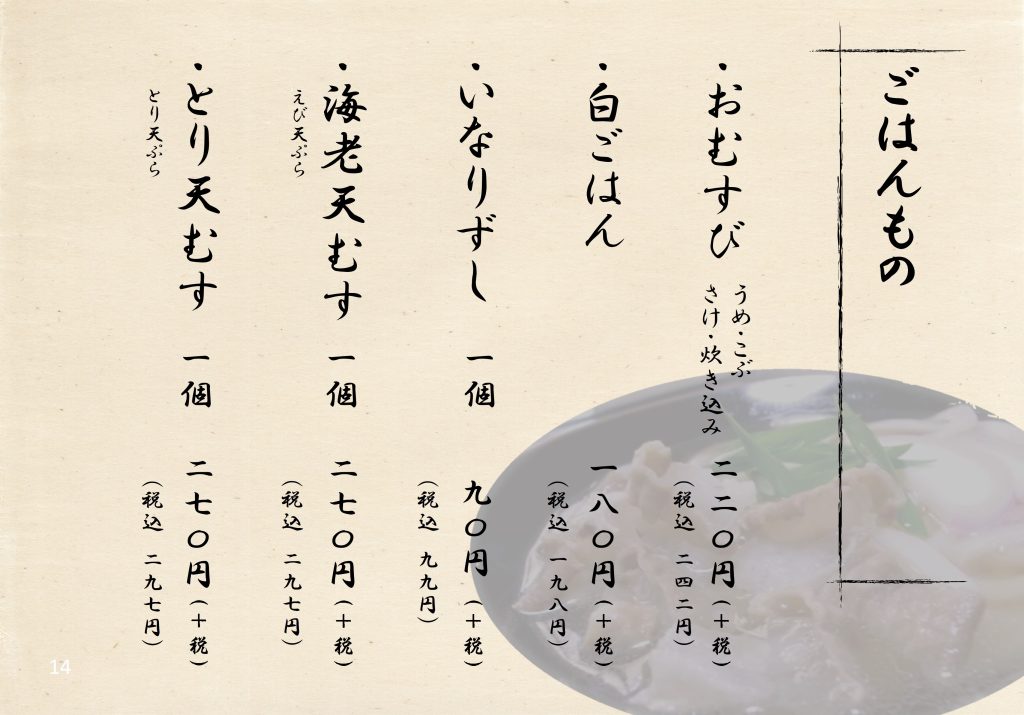 ごはんもの
・おむすび
うめ・こぶ
さけ・炊き込み
二二〇円（＋税）
（税込 二四二円）
・白ごはん 一八〇円（＋税）
（税込 一九八円）
・いなりずし 一個 九〇円（＋税）
（税込 九九円）
・海老天むす 一個 二七〇円（＋税）
えび天ぷら
（税込 二九七円）
・とり天むす 一個 二七〇円（＋税）
とり天ぷら
（税込 二九七円）
14